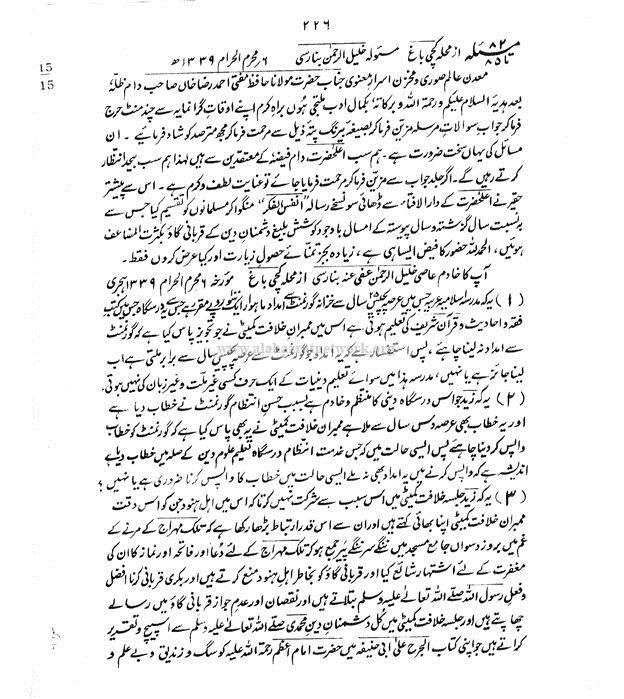 ۲۲۶
مسئلہ ۸۲ تا ۸۵ از محلہ کچی باغ مسئولہ خلیل الرحمٰن بنارسی ۶ محرم الحرام ۱۳۳۹ھ
15
15
معدن عالم صوری و مخزن اسرار معنوی جناب حضرت مولانا حافظ مفتی احمد رضا خاں صاحب دام ظلہٗ
بعد ہدیۂ السلام علیکم ورحمۃ اللہ وبرکاتہٗ بکمال ادب ملتجی ہوں براہ کرم اپنے اوقات گرانمایہ سے چند منٹ حرج
فرما کر جواب سوالات مرسلہ مزیّن فرما کر بصیغہ بیرنگ پتہ ذیل سے مرحمت فرما کر مجھ مترصد کو شاد فرمائیے۔ ان
مسائل کی یہاں سخت ضرورت ہے۔ ہم سب اعلٰحضرت، دام فیضہٗ کے معتقدین سے ہیں لہذا ہم سب بیحد انتظار
کرتے رہیں گے۔ اگر جلد جواب سے مزیّن فرما کر مرحمت فرمایا جائے تو عنایت لطف وکرم ہے۔ اس سے پیشتر
حقیر نے اعلٰحضرت کے دارالافتاء سے ڈھائی سو نسخے رسالہ "انفس الفکر" منگوا کر مسلمانوں کو تقسیم کیا جس سے
بہ نسبت سال گزشتہ و سال پیوستہ کے امسال باوجود کوشش بلیغ دشمنان دین کے قربانی گاؤ بکثرت المضاعف
ہوئیں، الحمد للہ حضور کا فیض ایسا ہی ہے، زیادہ بجز تمنائے حصول زیارت اور کیا عرض کروں فقط۔
آپ کا خادم عاصی خلیل الرحمٰن عفی عنہ بنارسی از محلہ کچی باغ مورخہ ۶ محرم الحرام ۱۳۳۹ ہجری
(۱) یہ کہ مدرسہ اسلامیہ عربیہ جس میں عرصہ پچیس سال سے خزانہ گورنمنٹ سے امداد ماہوار ایک سو روپیہ مقرر ہے جس درسگاہ میں کتب
فقہ و احادیث و قرآن شریف کی تعلیم ہوتی ہے اس میں ممبران خلافت کمیٹی نے جو تجویز پاس کیا ہے کہ گورنمنٹ
سے امداد نہ لینا چاہئے، پس استفسار ہے کہ یہ امداد جو گورنمنٹ سے عرصہ پچیس سال سے برابر ملتی ہے اب
لینا جائز ہے یا نہیں، مدرسہ ہذا میں سوائے تعلیم دینیات کے ایک حرف کسی غیر ملت و غیر زبان کی نہیں ہوتی۔
(۲) یہ کہ زید جو اس درسگاہ دینی کا منتظم و خادم ہے بسبب حسن انتظام گورنمنٹ نے خطاب دیا ہے
اور یہ خطاب بھی عرصہ دس سال سے ملا ہے ممبران خلافت کمیٹی نے یہ بھی پاس کیا ہے کہ گورنمنٹ کو خطاب
واپس کر دینا چاہئے پس ایسی حالت میں کہ جس خدمت انتظام درسگاہ تعلیم علوم دین کے صلہ میں خطاب دیا ہے
اندیشہ ہے کہ واپس کرنے میں یہ امداد بھی نہ ملے ایسی حالت میں خطاب کا واپس کرنا ضروری ہے یا نہیں؟
(۳) یہ کہ زید جلسہ خلافت کمیٹی میں اس سبب سے شرکت نہیں کرتا کہ اس میں اہل ہنود جن کو اس وقت
ممبران خلافت کمیٹی اپنا بھائی کہتے ہیں اور ان سے اس قدر ارتباط بڑھا رکھا ہے کہ تلک مہراج کے مرنے کے
غم میں بروز دسواں جامع مسجد میں ننگے سر ننگے پیر جمع ہو کر تلک مہراج کے لئے دُعا اور فاتحہ اور نماز کا ان کی
مغفرت کے لئے اشتہار شائع کیا اور قربانی گاؤ کو بخاطر اہل ہنود منع کرتے ہیں اور بکری قربانی کرنا افضل
و فعل رسول اللہ صلے اللہ تعالٰے علیہ وسلم بتلاتے ہیں اور نقصان اور عدم جواز قربانی گاؤ میں رسالے
چھاپتے ہیں اور جلسہ خلافت کمیٹی میں کل دشمنان دین محمدی صلے اللہ تعالٰے علیہ وسلم سے اسپیچ و تقریر
کراتے ہیں جو اپنی کتاب الجرح علٰی ابی حنیفہ میں حضرت امام اعظم رحمۃ اللہ علیہ کو سگ و زندیق و بے علم و